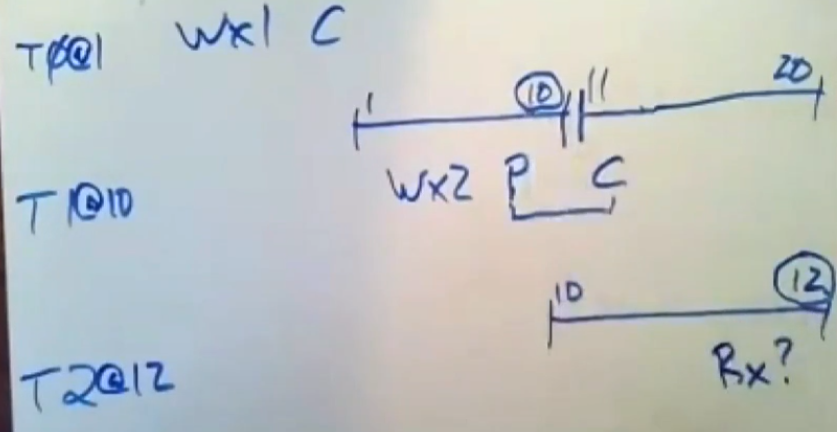 T0@1 Wx1 C
1 10 11 20
T1@10 Wx2 P C
10 12
T2@12 Rx?